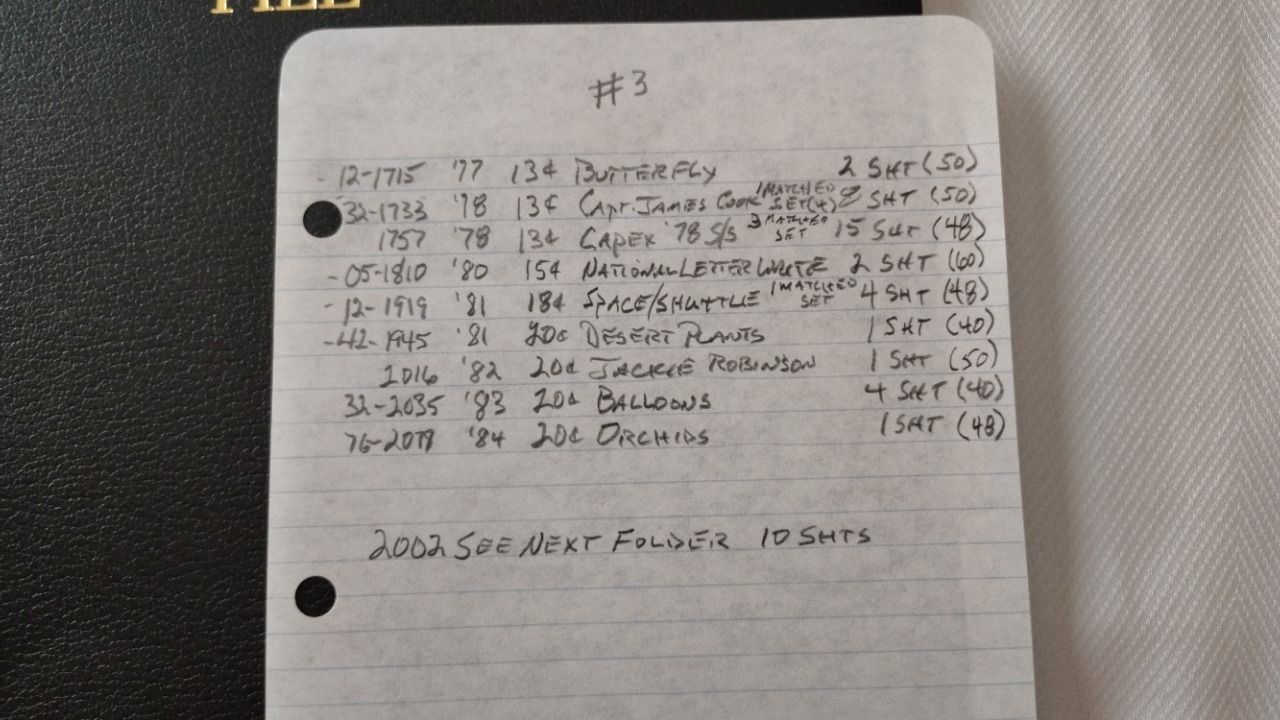 FILE
#3
- 12-1715 '77 13¢ BUTTERFLY 2 SHT (50)
32-1733 '78 13¢ CAPT. JAMES COOK 1 MATCHED SET (4) 8 SHT (50)
1757 '78 13¢ CAPEX '78 S/S 3 MATCHED SET 15 SHT (48)
- 05-1810 '80 15¢ NATIONAL LETTER WRITE 2 SHT (60)
- 12-1919 '81 18¢ SPACE/SHUTTLE 1 MATCHED SET 4 SHT (48)
- 42-1945 '81 20¢ DESERT PLANTS 1 SHT (40)
2016 '82 20¢ JACKIE ROBINSON 1 SHT (50)
32-2035 '83 20¢ BALLOONS 4 SHT (40)
76-2079 '84 20¢ ORCHIDS 1 SHT (48)
2002 SEE NEXT FOLDER 10 SHTS